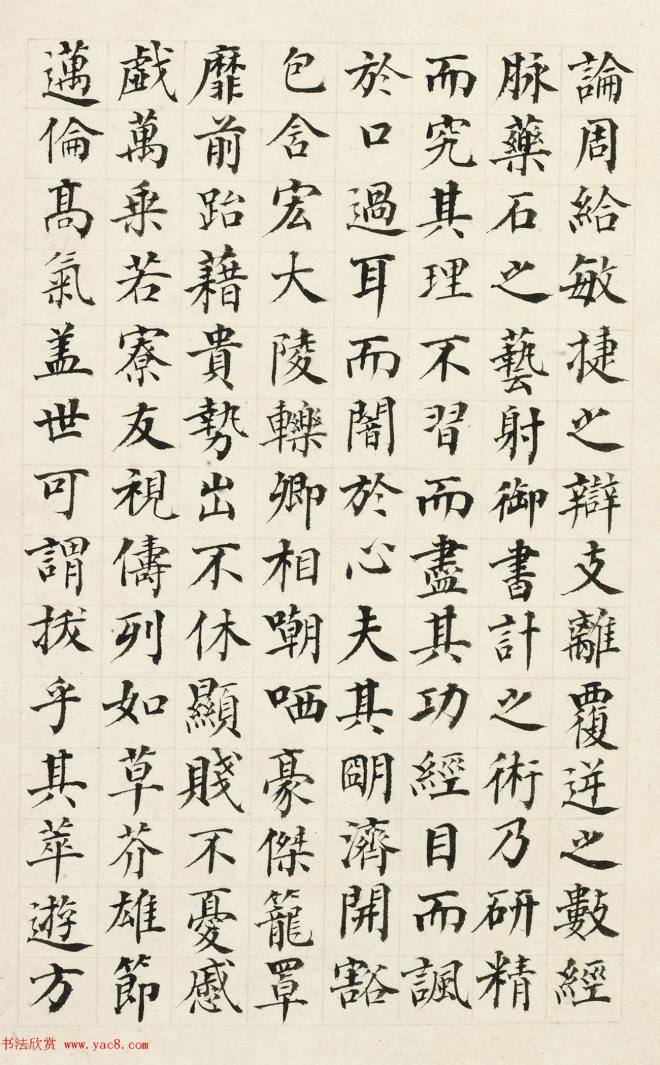 論周給敏捷之辯支離覆逆之數經
脉藥石之藝射御書計之術乃研精
而究其理不習而盡其功經目而諷
於口過耳而闇於心夫其明濟開豁
包含宏大陵轢卿相嘲哂豪傑籠罩
靡前跆藉貴勢出不休顯賤不憂慼
戯萬乘若寮友視儔列如草芥雄節
邁倫髙氣盖世可謂拔乎其萃遊方
书法欣赏 www.yac8.com